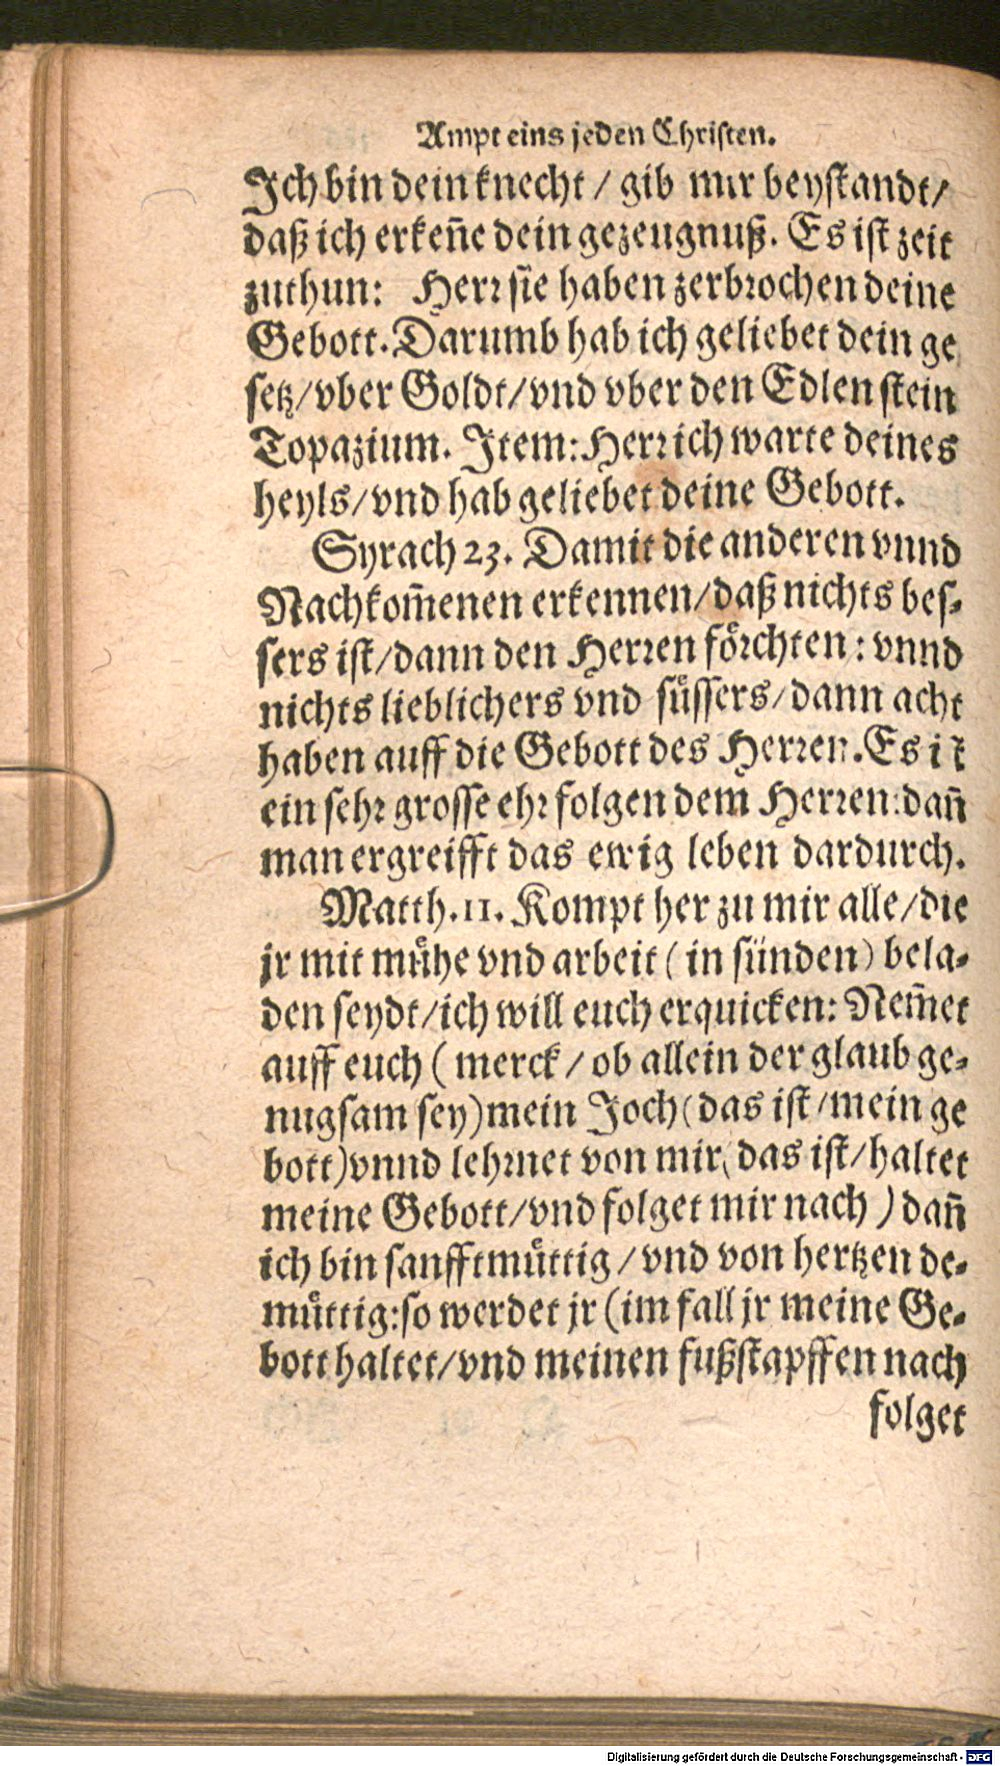 Ampt eins jeden Christen.
Ich bin dein knecht / gib mir beystandt/
daß ich erkeñe dein gezeugnuß. Es ist zeit
zuthun: Herr sie haben zerbrochen deine
Gebott. Darumb hab ich geliebet dein ge
setz/vber Goldt/vnd vber den Edlen stein
Topazium. Item: Herr ich warte deines
heyls/vnd hab geliebet deine Gebott.
Syrach 23. Damit die anderen vnnd
Nachkom̃enen erkennen/daß nichts bes-
sers ist/dann den Herren föꝛchten: vnnd
nichts lieblichers vnd süssers/dann acht
haben auff die Gebott des Herren. Es ist
ein sehr grosse ehr folgen dem Herren: dañ
man ergreifft das ewig leben dardurch.
Matth. 11. Kompt her zu mir alle/die
jr mit mühe vnd arbeit ( in sünden) bela-
den seydt/ich will euch erquicken: Nem̃et
auff euch ( merck / ob allein der glaub ge-
nugsam sey) mein Joch (das ist/mein ge
bott) vnnd lehrnet von mir (das ist/haltet
meine Gebott/vnd folget mir nach ) dañ
ich bin sanfftmüttig / vnd von hertzen de-
müttig: so werdet jr (im fall jr meine Ge-
bott haltet/vnd meinen fußstapffen nach
folget
Digitalisierung gefördert durch die Deutsche Forschungsgemeinschaft - DFG